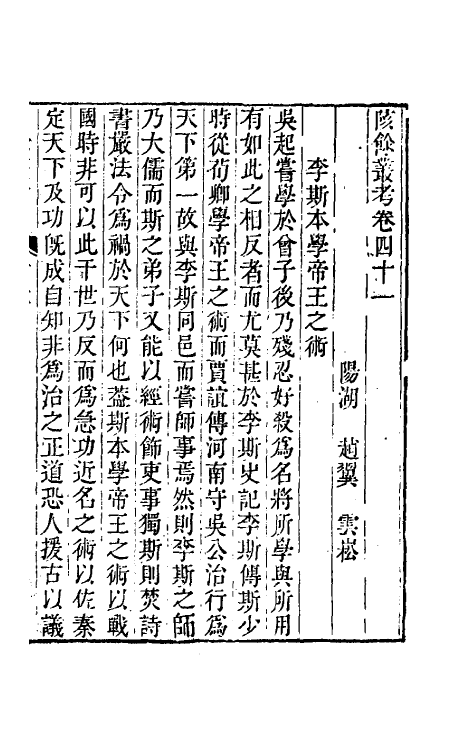 陔餘叢考卷四十一
陽湖 趙翼 雲崧
李斯本學帝王之術
吳起嘗學於曾子後乃殘忍好殺爲名將所學與所用
有如此之相反者而尤莫甚於李斯史記李斯傳斯少
時從荀卿學帝王之術而賈誼傳河南守吳公治行爲
天下第一故與李斯同邑而嘗師事焉然則李斯之師
乃大儒而斯之弟子又能以經術飾吏事獨斯則焚詩
書嚴法令爲禍於天下何也蓋斯本學帝王之術以戰
國時非可以此干世乃反而爲急功近名之術以佐秦
定天下及功旣成自知非爲治之正道恐人援古以議